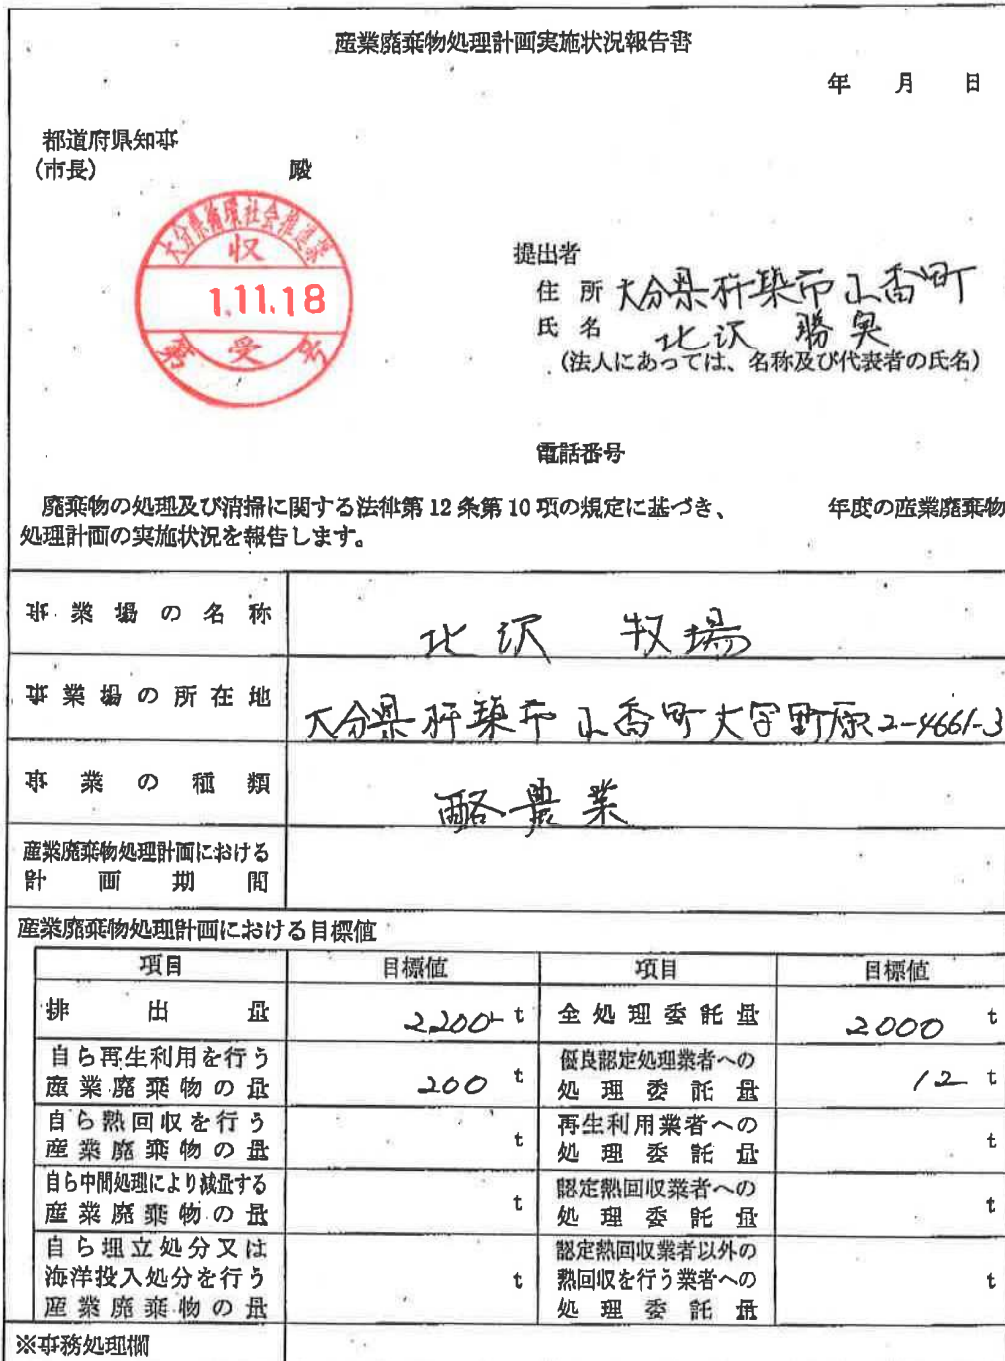 産業廃棄物処理計画実施状況報告書
年 月 日
都道府県知事
(市長) 殿
大分県循環社会推進課
収
1.11.18
受
第 号
提出者
住所 大分県杵築市山香町
氏名 北沢 勝
(法人にあっては、名称及び代表者の氏名)
電話番号
廃棄物の処理及び清掃に関する法律第12条第10項の規定に基づき、 年度の産業廃棄物
処理計画の実施状況を報告します。
事業場の名称 北沢 牧場
事業場の所在地 大分県杵築市山香町大字野原2-4661-3
事業の種類 酪農業
産業廃棄物処理計画における
計画期間
産業廃棄物処理計画における目標値
項目 目標値 項目 目標値
排出量 2200 t 全処理委託量 2000 t
自ら再生利用を行う
産業廃棄物の量 200 t
優良認定処理業者への
処理委託量 12 t
自ら熱回収を行う
産業廃棄物の量 t
再生利用業者への
処理委託量 t
自ら中間処理により減量する
産業廃棄物の量 t
認定熱回収業者への
処理委託量 t
自ら埋立処分又は
海洋投入処分を行う
産業廃棄物の量 t
認定熱回収業者以外の
熱回収を行う業者への
処理委託量 t
※事務処理欄